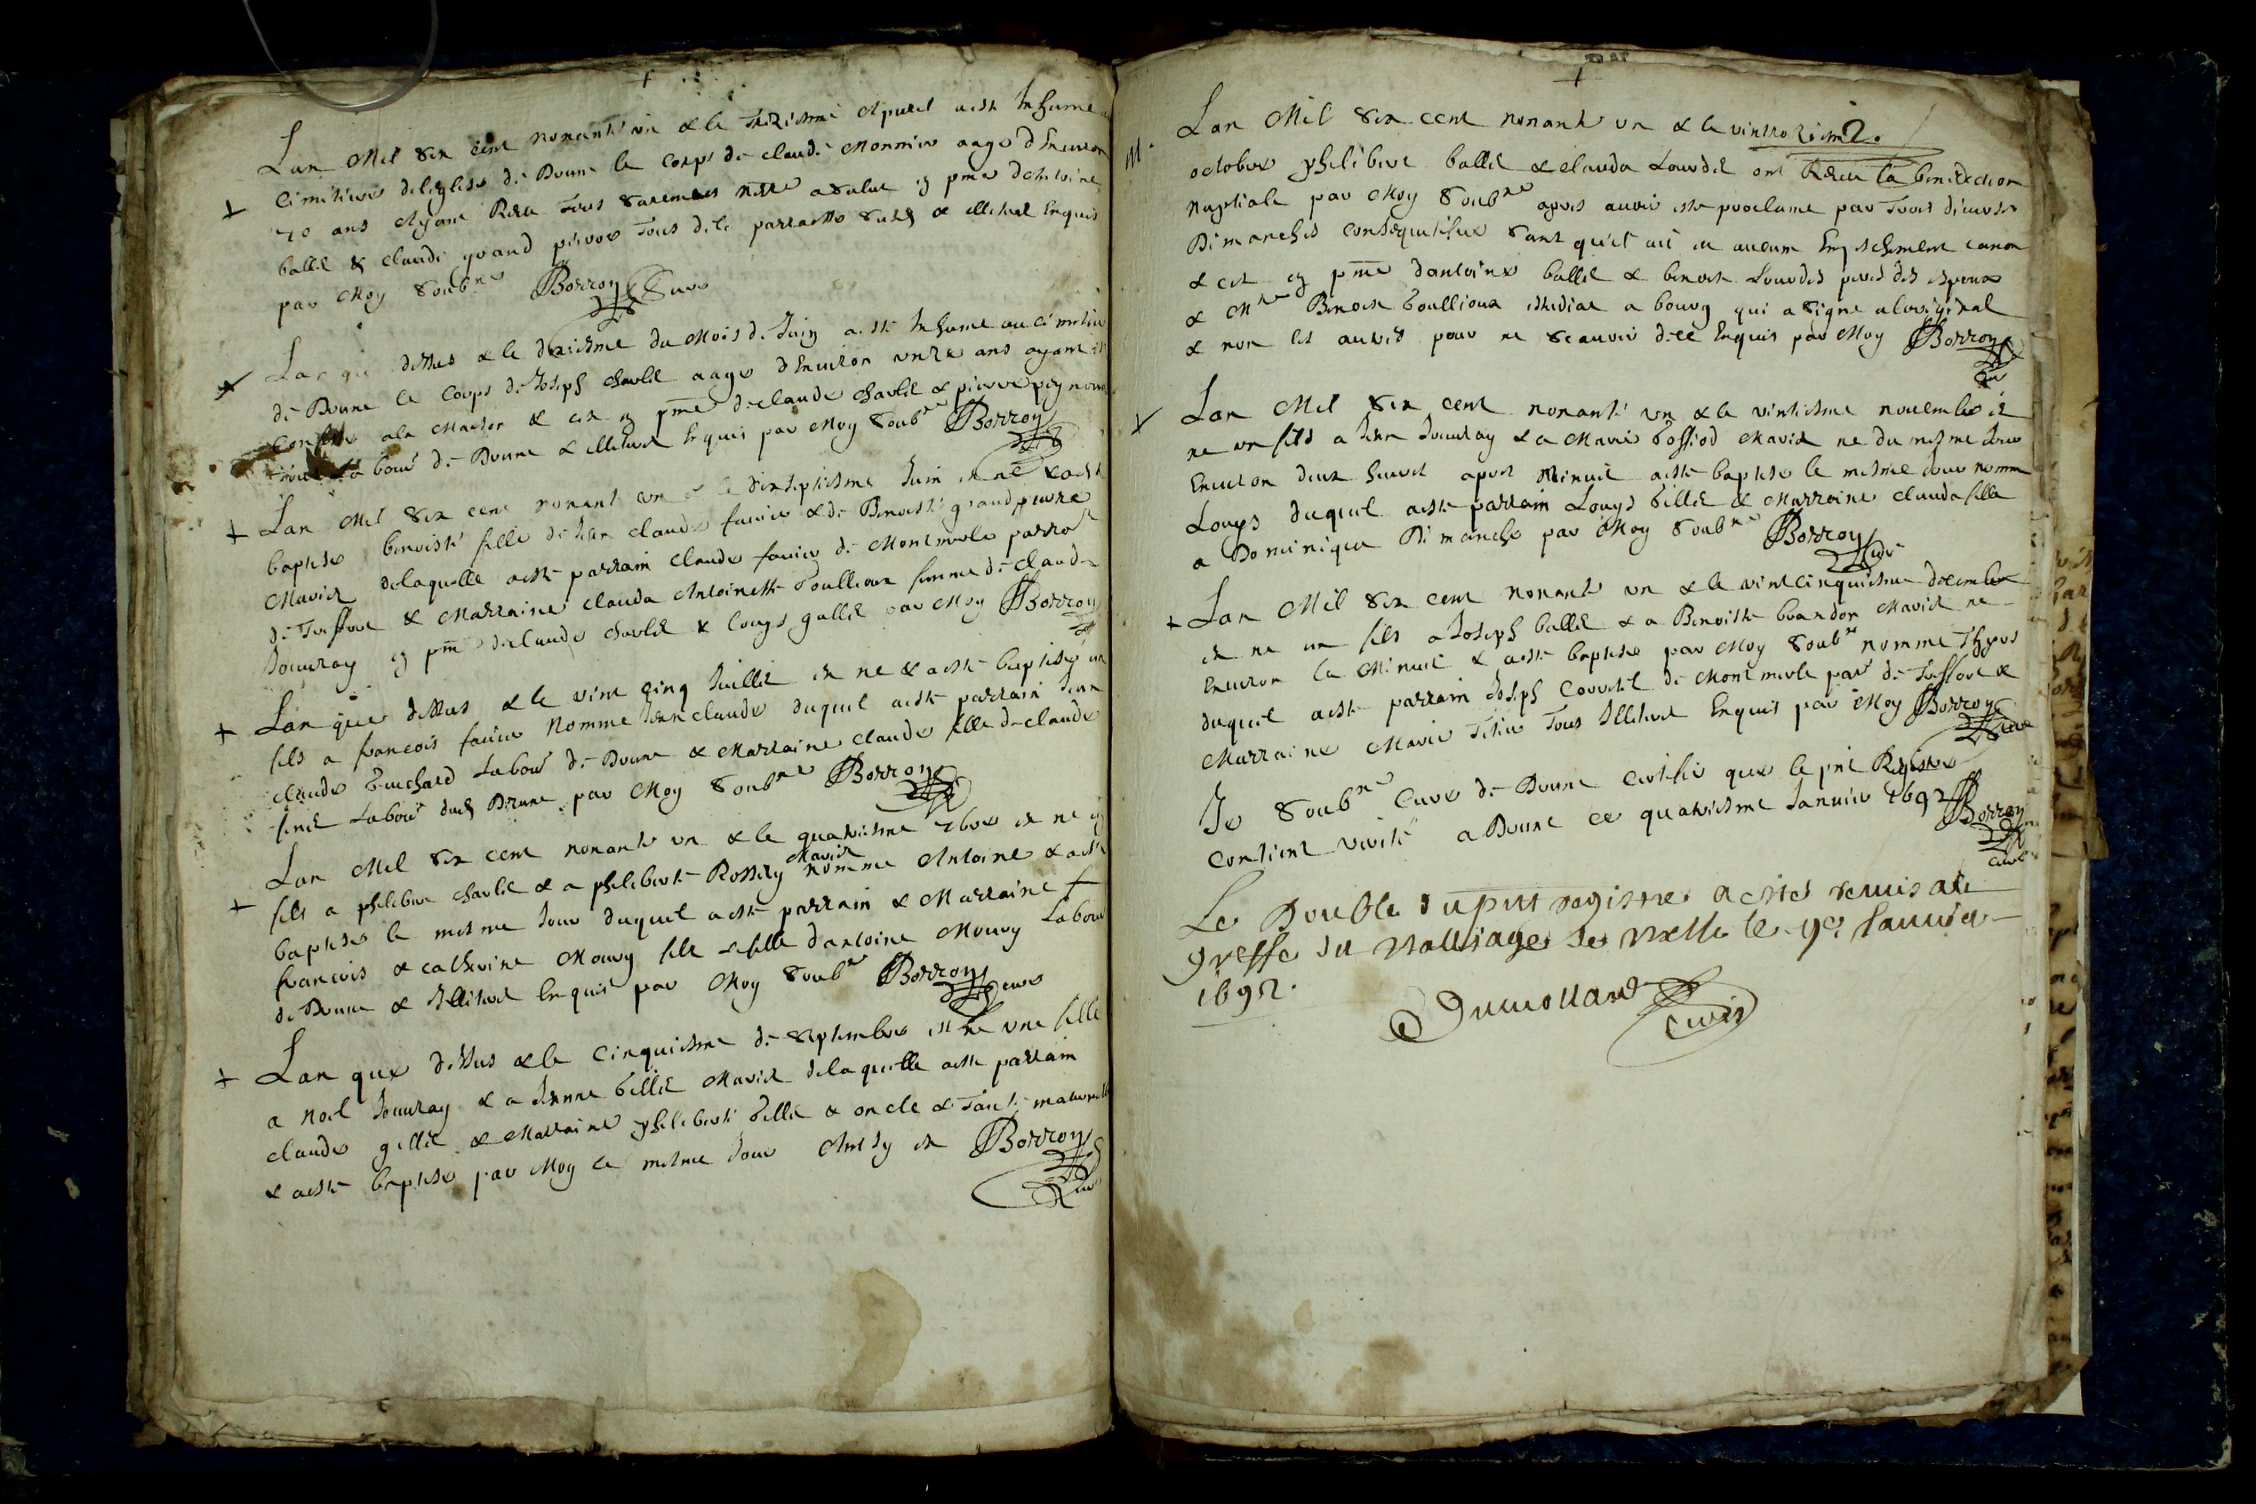 Lan Mil Six cent nonante un & le treziesme Apuril a este Inhume
Cimitiere de leglise de Druma le Corps de claude Monnier aage dEnuiron
70 ans Ayant Receu Tous Sacrements nessre a Salut en pnce dAntoine
ballet & claude grand pierre Tous de la parroisse Susd & illiteré Enquis
par Moy Soubné Borron Cure
Lan que dessus & le dixiesme du Mois de Juin a este Inhume au Cimetiere
de Druma le Corps de Joseph charlet aage dEnuiron unze ans ayant
Confesse a la & est en pnce de claude charlet & pierre
labour de Druma & illiteré Enquis par Moy Soubné Borron
Lan Mil Six cent nonante un & le dixseptiesme Juin est né & a este
baptisée benoiste fille de Jean claude fauier & de Benoiste grand pierre
Mariez de laquelle a este parrain claude fauier de Montmerle parrosse
de & Marraine clauda Antoinette Toulliour femme de claude
Jouuray en pnce de claude charlet & Louys gallet par Moy Borron
Lan que dessus & le vint cinq Juillet est ne & a este baptisé un
fils a francois fauier Nomme Jean claude duquel a este parrain Jean
claude Truchard Labour de Druma & Marraine claude fille de claude
Labour dud Druma par Moy Soubné Borron
Lan Mil Six cent nonante un & le quatriesme 7bre est ne un
fils a philibert charlet & a philiberte Rossery Mariez nomme Antoine & a este
baptisé le mesme Jour duquel a este parrain & Marraine
francois & catherine Moury fils & fille dantoine Moury Labour
de Druma & Illiteré Enquis par Moy Soubné Borron cure
Lan que dessus & le Cinquiesme de septembre est ne une fille
a Noel Jouuray & a Jeanne billet Mariez de laquelle a este parrain
claude gillet & Marraine philiberte billet & oncle & Tante maternelle
& a este baptisé par Moy le mesme Jour Ainsy est Borron
Cure
m.
Lan Mil Six cent nonante un & le vintroziem 2.
octobre philibert ballet & clauda Lourdel ont Receu la benediction
nuptiale par Moy Soubné apres auoir este proclame par Trois diuerses
Dimanches Consequtifue Sans quil ait eu aucun Empeschement canon
& cet en pnce dantoine ballet & benoit Lourdel peres des espoux
& Mre Benoit Toulliour estudiat a bourg qui a signe a loriginal
& non les autres pour ne scauoir de ce Enquis par Moy Borron
Cure
Lan Mil Six cent nonante un & le vintiesme nouembre est
ne un fils a Jean Jouuray & a Marie bossiod Mariez ne du mesme Jour
Enuiron deux heures apres Minuit a este baptisé le mesme Jour nomme
Louys duquel a este parrain Louys billet & Marraine clauda fille
a Dominique Dimanche par Moy Soubné Borron Cure
Lan Mil Six cent nonante un & le vint cinquiesme decembre
est ne un fils a Joseph ballet & a Benoiste brandon Mariez ne
Enuiron la Minuit & a este baptisé par Moy Soubné nomme
duquel a este parrain Joseph de Montmerle par de &
Marraine Marie Tous Illiteré Enquis par Moy Borron Cure
Je Soubné Cure de Druma Certifie que le pnt Registre
Contient verité a Druma ce quatriesme Januier 1692 Borron
cure
Le Double du pnt registre a esté remis au
greffe du Balliage de Bresse le 9e Januier
1692.